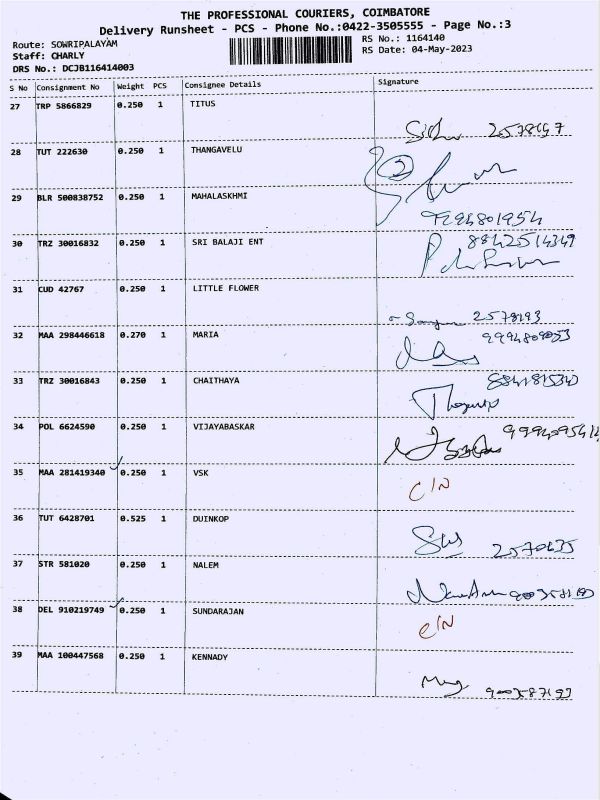 THE PROFESSIONAL COURIERS, COIMBATORE
Delivery Runsheet - PCS - Phone No.:0422-3505555 - Page No.:3
Route: SOWRIPALAYAM
Staff: CHARLY
DRS No.: DCJB116414003
RS No.: 1164140
RS Date: 04-May-2023
S No Consignment No Weight PCS Consignee Details Signature
27 TRP 5866829 0.250 1 TITUS
28 TUT 222630 0.250 1 THANGAVELU
29 BLR 500838752 0.250 1 MAHALASKHMI
9294801954
30 TRZ 30016832 0.250 1 SRI BALAJI ENT
8842514349
31 CUD 42767 0.250 1 LITTLE FLOWER
2578193
32 MAA 298446618 0.270 1 MARIA
33 TRZ 30016843 0.250 1 CHAITHAYA
34 POL 6624590 0.250 1 VIJAYABASKAR
35 MAA 281419340 0.250 1 VSK
C/N
36 TUT 6428701 0.525 1 DUINKOP
37 STR 581020 0.250 1 NALEM
38 DEL 910219749 0.250 1 SUNDARAJAN
C/N
39 MAA 100447568 0.250 1 KENNADY